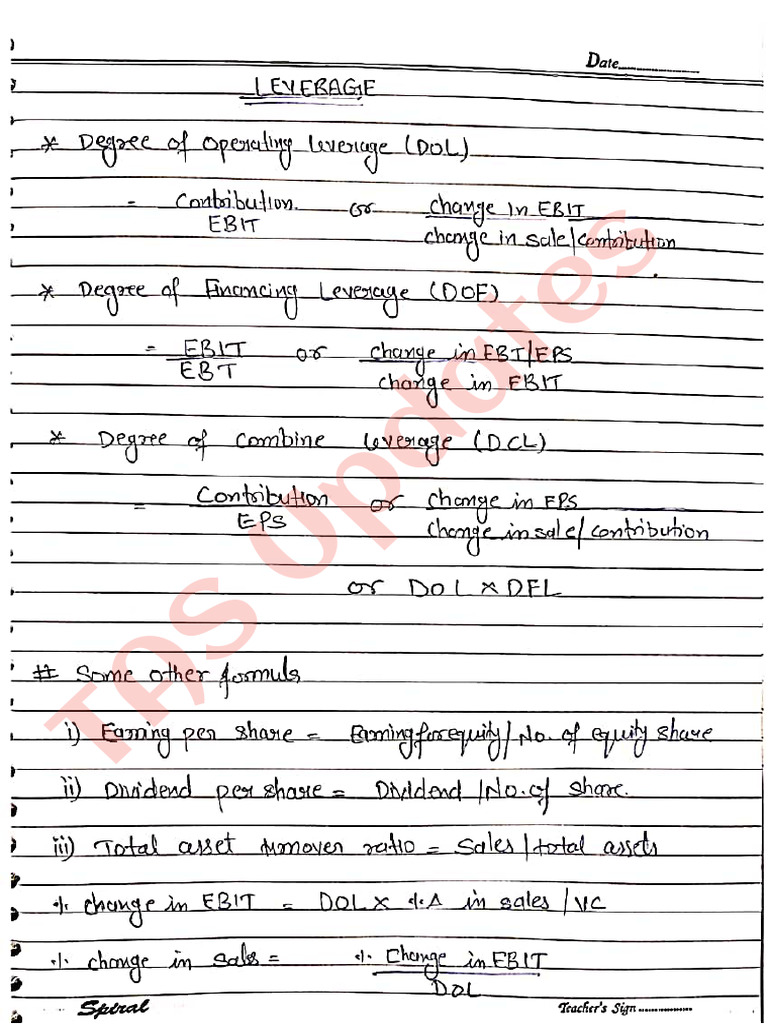 Date
LEVERAGE
* Degree of Operating leverage (DOL)
= Contribution or change in EBIT
EBIT change in sale/contribution
* Degree of Financing Leverage (DOF)
= EBIT or change in EBT/EPS
EBT change in EBIT
* Degree of Combine leverage (DCL)
= Contribution or change in EPS
EPS change in sale/contribution
or DOL × DFL
# Some other formuls
i) Earning per share = Earning for equity/No. of equity share
ii) Dividend per share = Dividend/No. of share.
iii) Total asset turnover ratio = Sales/total assets
% change in EBIT = DOL × % Δ in sales/VC
% change in sales = % Change in EBIT
DOL
Spiral Teacher's Sign
TAS Updates